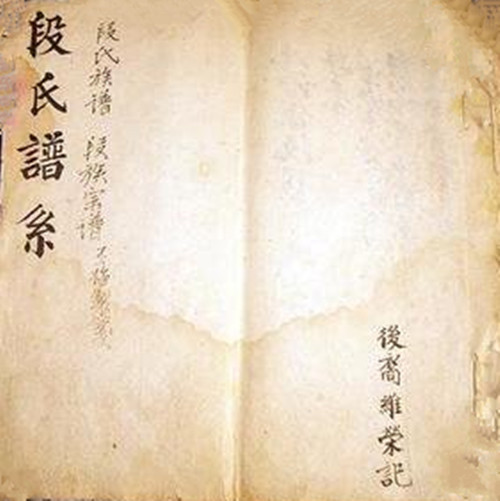 後裔維榮記
段氏族譜 段族宗譜
段氏譜系